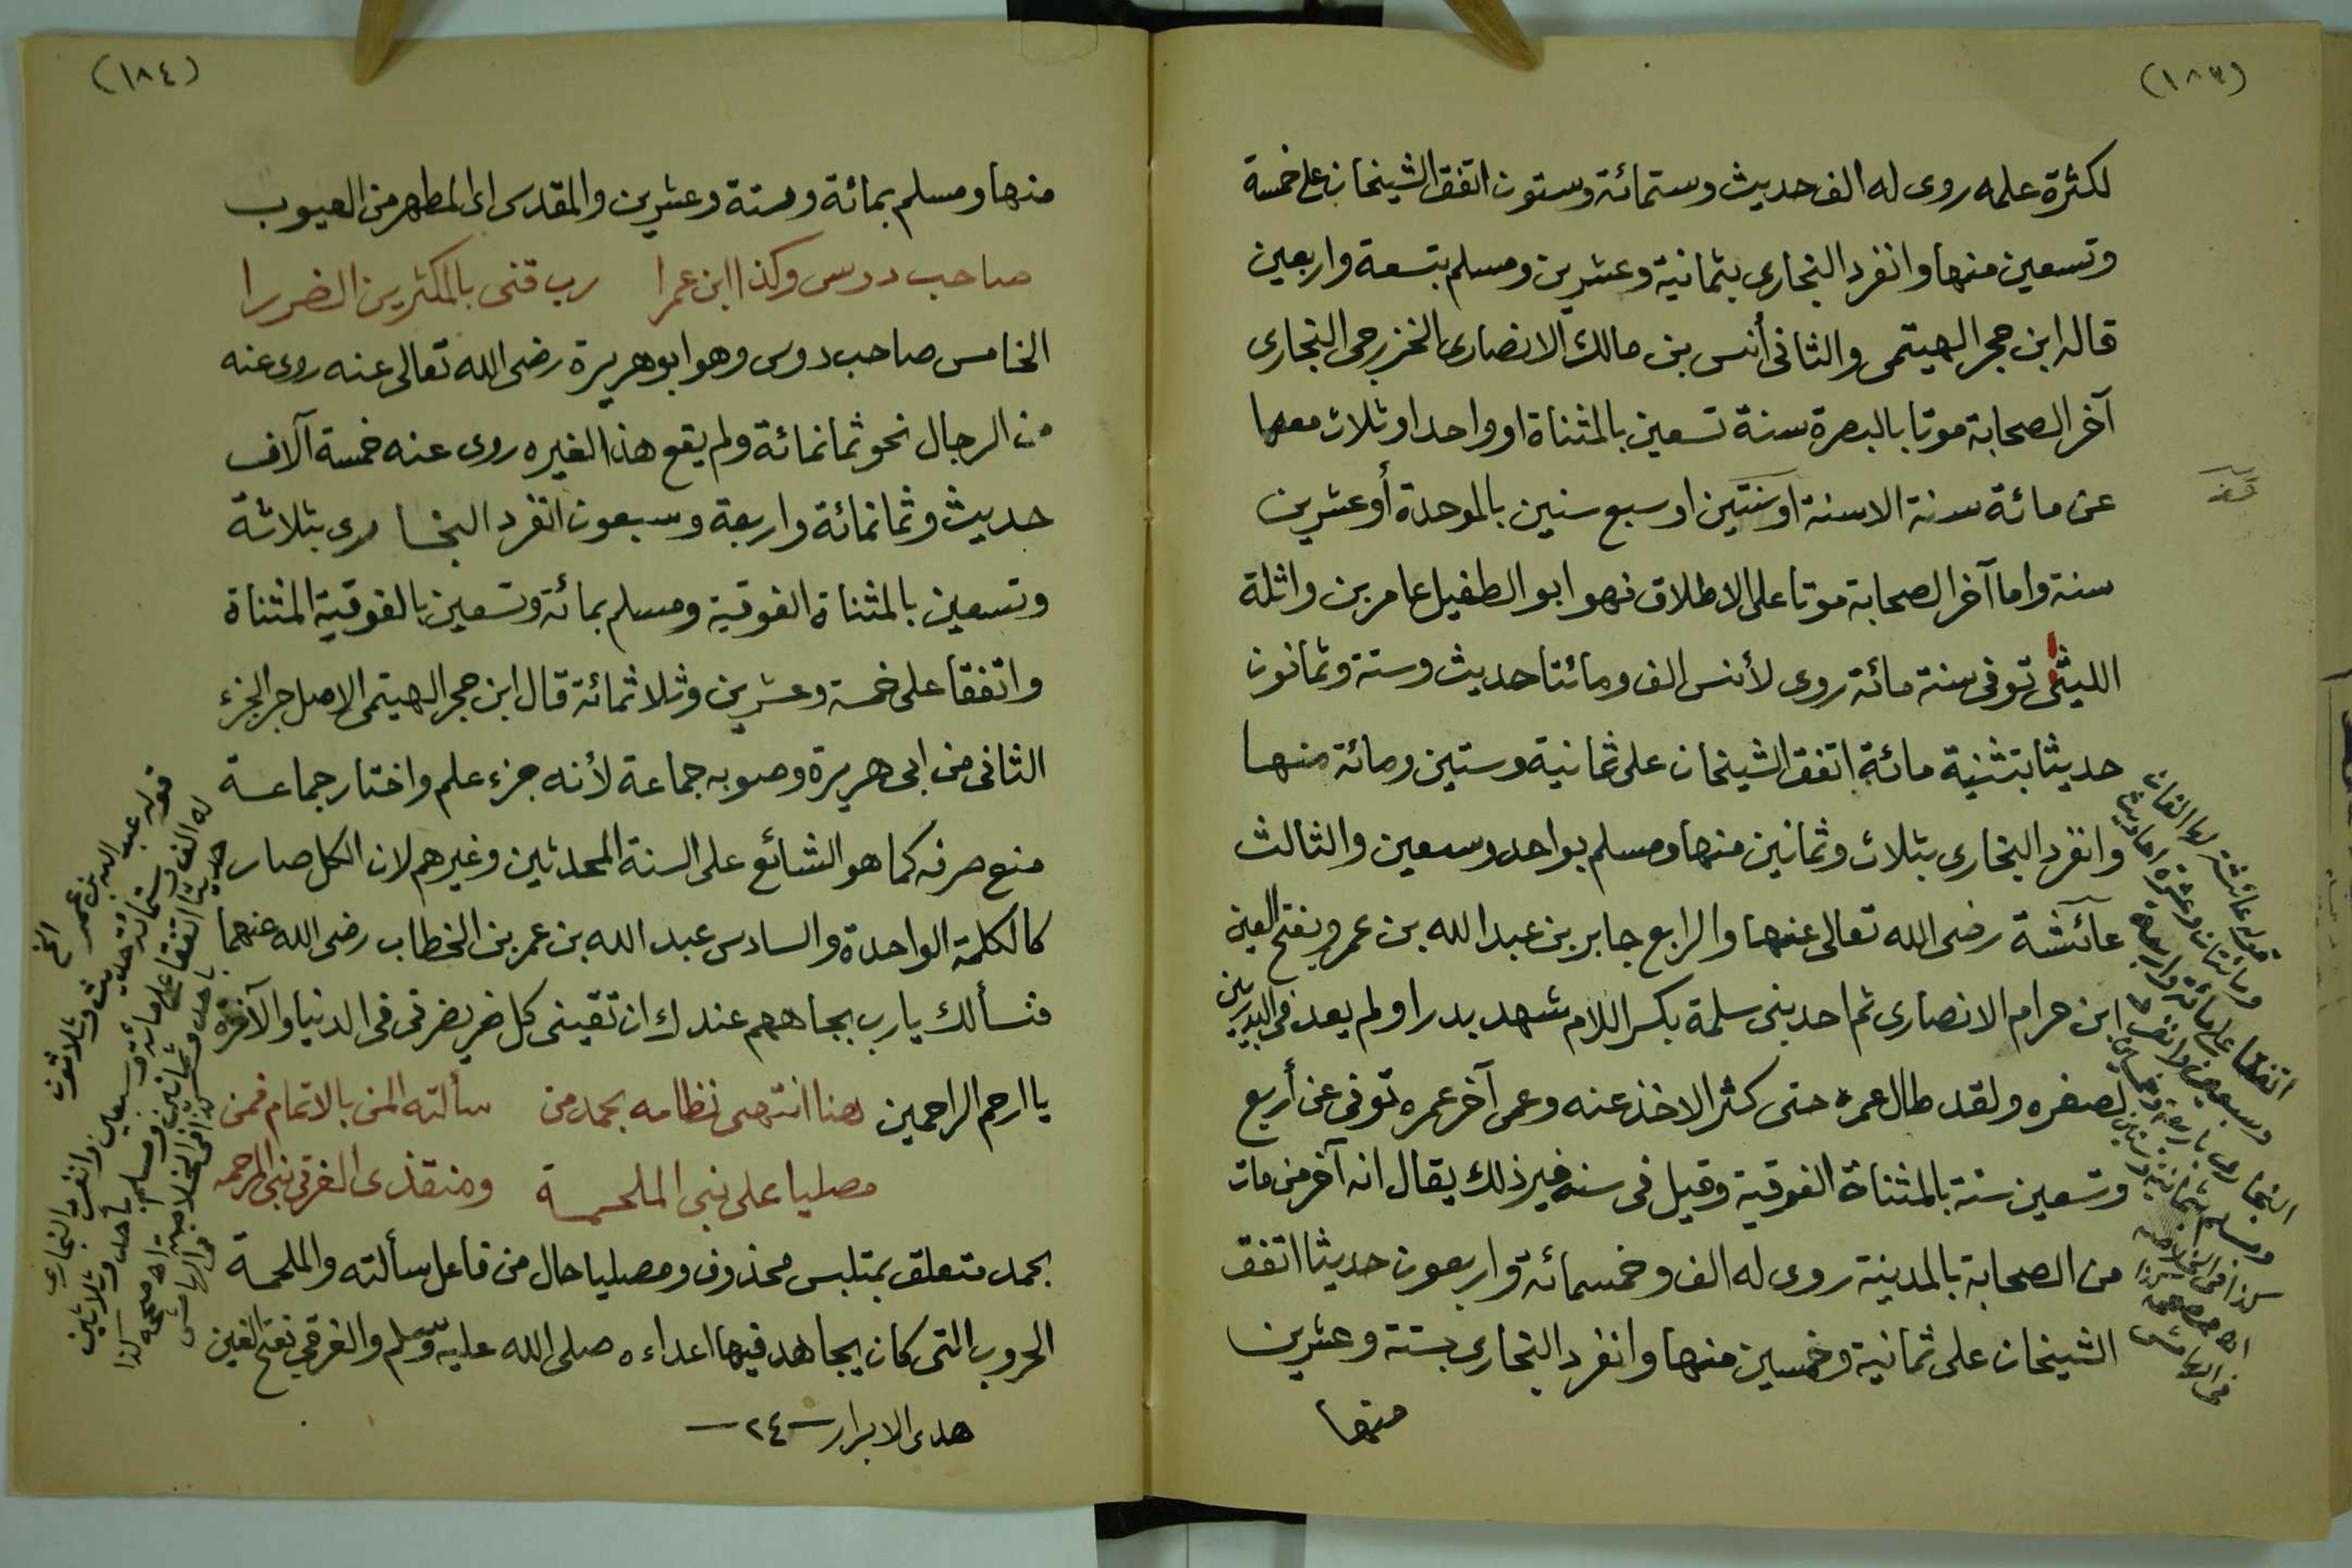 (١٨٣)
لكثرة علمه روى له الف حديث وستمائة وستون اتفق الشيخان على خمسة
وتسعين منها وانفرد البخارى بثمانية وعشرين ومسلم بتسعة واربعين
قاله ابن حجر الهيتمى والثانى أنس بن مالك الانصارى الخزرجى النجارى
آخر الصحابة موتا بالبصرة سنة تسعين بالمثناة او واحد او ثلاث معها
عن مائة سنة الا سنة او سنتين او سبع سنين بالموحدة أو عشرين
سنة واما آخر الصحابة موتا على الاطلاق فهو ابو الطفيل عامر بن واثلة
الليثى توفى سنة مائة روى لأنس الف ومائتا حديث وستة وثمانون
حديثا بتثنية مائة اتفق الشيخان على ثمانية وستين ومائة منها
وانفرد البخارى بثلاث وثمانين منها ومسلم بواحد وسبعين والثالث
عائشة رضى الله تعالى عنها والرابع جابر بن عبد الله بن عمرو بفتح العين
ابن حرام الانصارى ثم احد بنى سلمة بكسر اللام شهد بدرا ولم يعد فى البدريين
لصغره ولقد طال عمره حتى كثر الاخذ عنه وعمى آخر عمره توفى عن أربع
وتسعين سنة بالمثناة الفوقية وقيل فى سنه غير ذلك يقال انه آخر من مات
من الصحابة بالمدينة روى له الف وخمسمائة واربعون حديثا اتفق
الشيخان على ثمانية وخمسين منها وانفرد البخارى بستة وعشرين
منها
قوله عائشة لها الفان
ومائتان وعشرة احاديث
اتفقا على مائة واربعة
وسبعين وانفرد
البخارى باربعة وخمسين
ومسلم بثمانية وستين
كذا فى الخلاصة
اه مصححه كذا
فى الهامش
(١٨٤)
منها ومسلم بمائة وستة وعشرين والمقدس اى المطهر من العيوب
صاحب دوس وكذا ابن عمرا رب قنى بالمكثرين الضررا
الخامس صاحب دوس وهو ابو هريرة رضى الله تعالى عنه روى عنه
من الرجال نحو ثمانمائة ولم يقع هذا لغيره روى عنه خمسة آلاف
حديث وثمانمائة واربعة وسبعون انفرد البخارى بثلاثة
وتسعين بالمثناة الفوقية ومسلم بمائة وتسعين بالفوقية المثناة
واتفقا على خمسة وعشرين وثلاثمائة قال ابن حجر الهيتمى الاصل جر الجزء
الثانى من ابى هريرة وصوبه جماعة لأنه جزء علم واختار جماعة
منع صرفه كما هو الشائع على السنة المحدثين وغيرهم لان الكل صار
كالكلمة الواحدة والسادس عبد الله بن عمر بن الخطاب رضى الله عنهما
فنسألك يارب بجاههم عندك ان تقينى كل ضر يضرنى فى الدنيا والآخرة
يا ارحم الراحمين هنا انتهى نظامه بحمد من سألته المن بالاتمام فمن
مصليا على نبى الملحمة ومنقذى الغرقى نبى المرحمه
بحمد متعلق بمتلبس محذوف ومصليا حال من فاعل سألته والملحمة
الحروب التى كان يجاهد فيها اعداءه صلى الله عليه وسلم والغرقى بفتح الغين
هدى الابرار — ٢٤ —
قوله عبد الله بن عمر الخ
له الف وستمائة حديث وثلاثون
حديثا اتفقا على مائة وسبعين وانفرد البخارى
باحد وثمانين ومسلم باحد وثلاثين
كذا فى الخلاصة اه مصححه كذا
فى الهامش